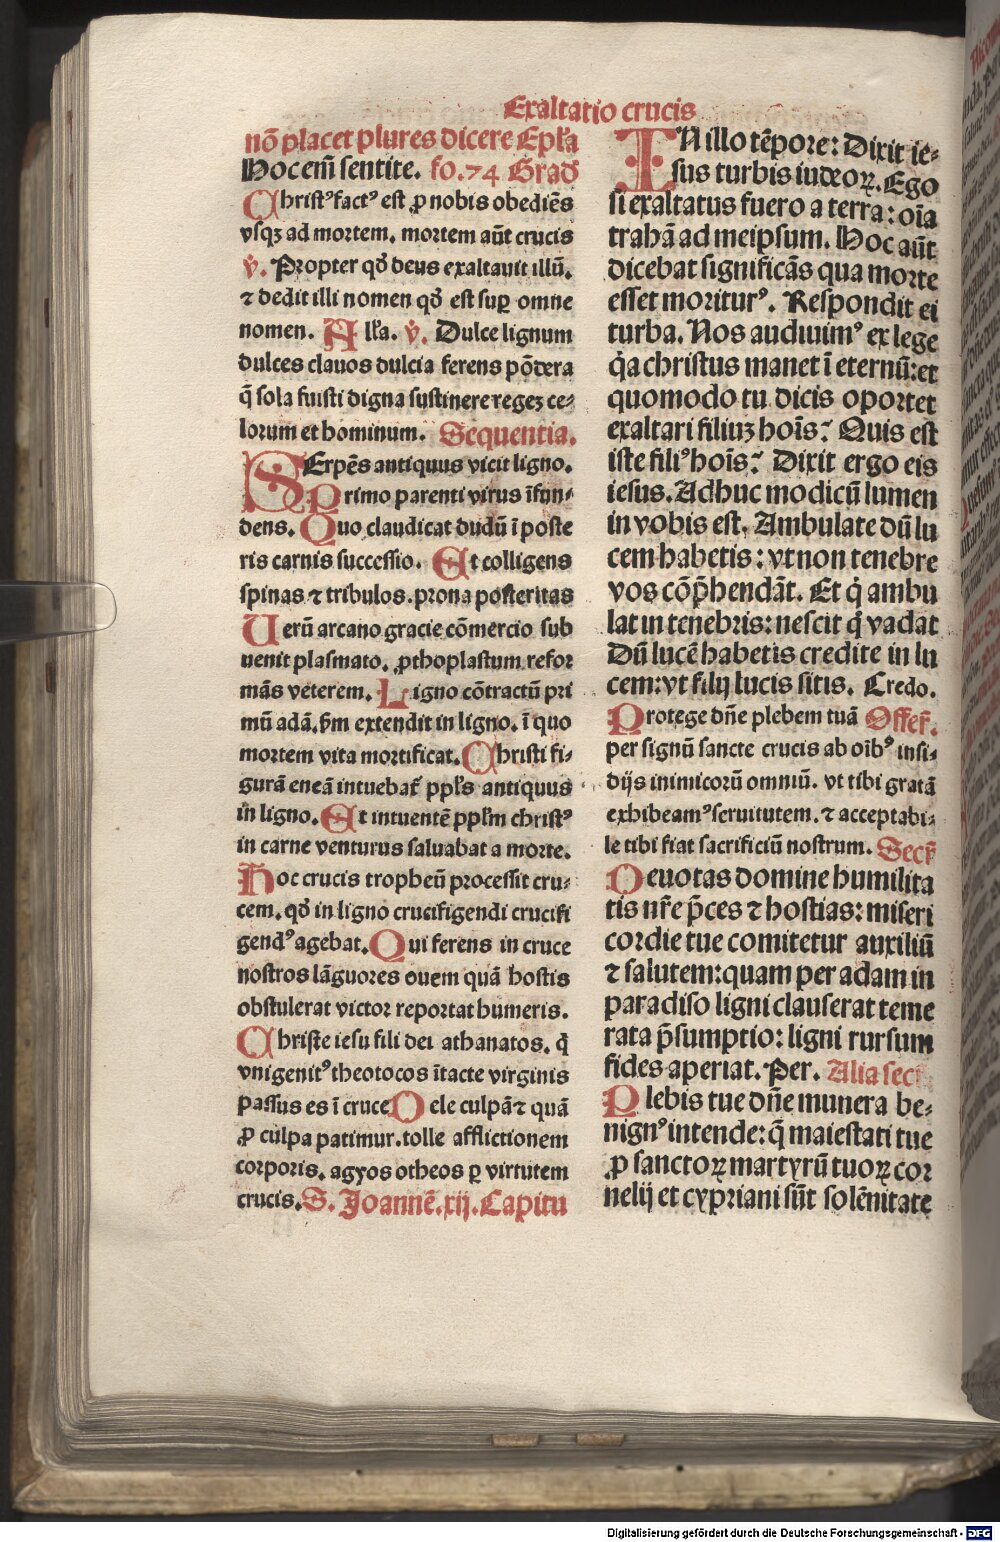 Exaltatio crucis
nō placet plures dicere Epl̄a
Hoc em̄ sentite. fo.74 Grad̄
Christꝰ factꝰ est ꝓ nobis obediēs
vsqꝫ ad mortem. mortem aūt crucis
v̄. Propter qd̄ deus exaltauit illū.
⁊ dedit illi nomen qd̄ est suꝑ omne
nomen. All̄a. v̄. Dulce lignum
dulces clauos dulcia ferens pōdera
q̄ sola fuisti digna sustinere regeꝫ ce⸗
lorum et hominum. Sequentia.
SErpēs antiquus vicit ligno.
Primo parenti virus īfun⸗
dens. Quo claudicat dudū ī poste
ris carnis successio. Et colligens
spinas ⁊ tribulos. prona posteritas
Uerū arcano gracie cōmercio sub
uenit plasmato. ꝓthoplastum refor
māns veterem. Ligno cōtractū pri
mū adā. ꝑm extendit in ligno. ī quo
mortem vita mortificat. Christi fi⸗
gurā eneā intuebat̄ ppl̄s antiquus
in ligno. Et intuentē ppl̄m christꝰ
in carne venturus saluabat a morte.
Hoc crucis tropheū processit cru⸗
cem. qd̄ in ligno crucifigendi crucifi
gendꝰ agebat. Qui ferens in cruce
nostros lāguores ouem quā hostis
obstulerat victor reportat humeris.
Christe iesu fili dei athanatos. q̄
vnigenitꝰ theotocos ītacte virginis
passus es ī cruce Dele culpā ⁊ quā
ꝓ culpa patimur. tolle afflictionem
corporis. agyos otheos ꝑ virtutem
crucis. S. Joannē. xij. Capitu
IN illo tēpore: Dixit ie⸗
sus turbis iudeoꝝ. Ego
si exaltatus fuero a terra: oīa
trahā ad meipsum. Hoc aūt
dicebat significās qua morte
esset moriturꝰ. Respondit ei
turba. Nos audiuimꝰ ex lege
q̇a christus manet ī eternū: et
quomodo tu dicis oportet
exaltari filiuꝫ hoīs? Quis est
iste filiꝰ hoīs? Dixit ergo eis
iesus. Adhuc modicū lumen
in vobis est. Ambulate dū lu
cem habetis: vt non tenebre
vos cōp̄hendāt. Et q̇ ambu
lat in tenebris: nescit q̇ vadat
Dū lucē habetis credite in lu
cem: vt filij lucis sitis. Credo.
Protege dn̄e plebem tuā Offer̄.
per signū sancte crucis ab oībꝰ insi⸗
dijs inimicorū omniū. vt tibi gratā
exhibeamꝰ seruitutem. ⁊ acceptabi⸗
le tibi fiat sacrificiū nostrum. Secr̄
Deuotas domine humilita
tis nr̄e p̄ces ⁊ hostias: miseri
cordie tue comitetur auxiliū
⁊ salutem: quam per adam in
paradiso ligni clauserat teme
rata p̄sumptio: ligni rursum
fides aperiat. Per. Alia sec̄
Plebis tue dn̄e munera be⸗
nignꝰ intende: q̄ maiestati tue
ꝓ sanctoꝝ martyrū tuoꝝ cor
nelij et cypriani sūt solēnitate
Digitalisierung gefördert durch die Deutsche Forschungsgemeinschaft - DFG